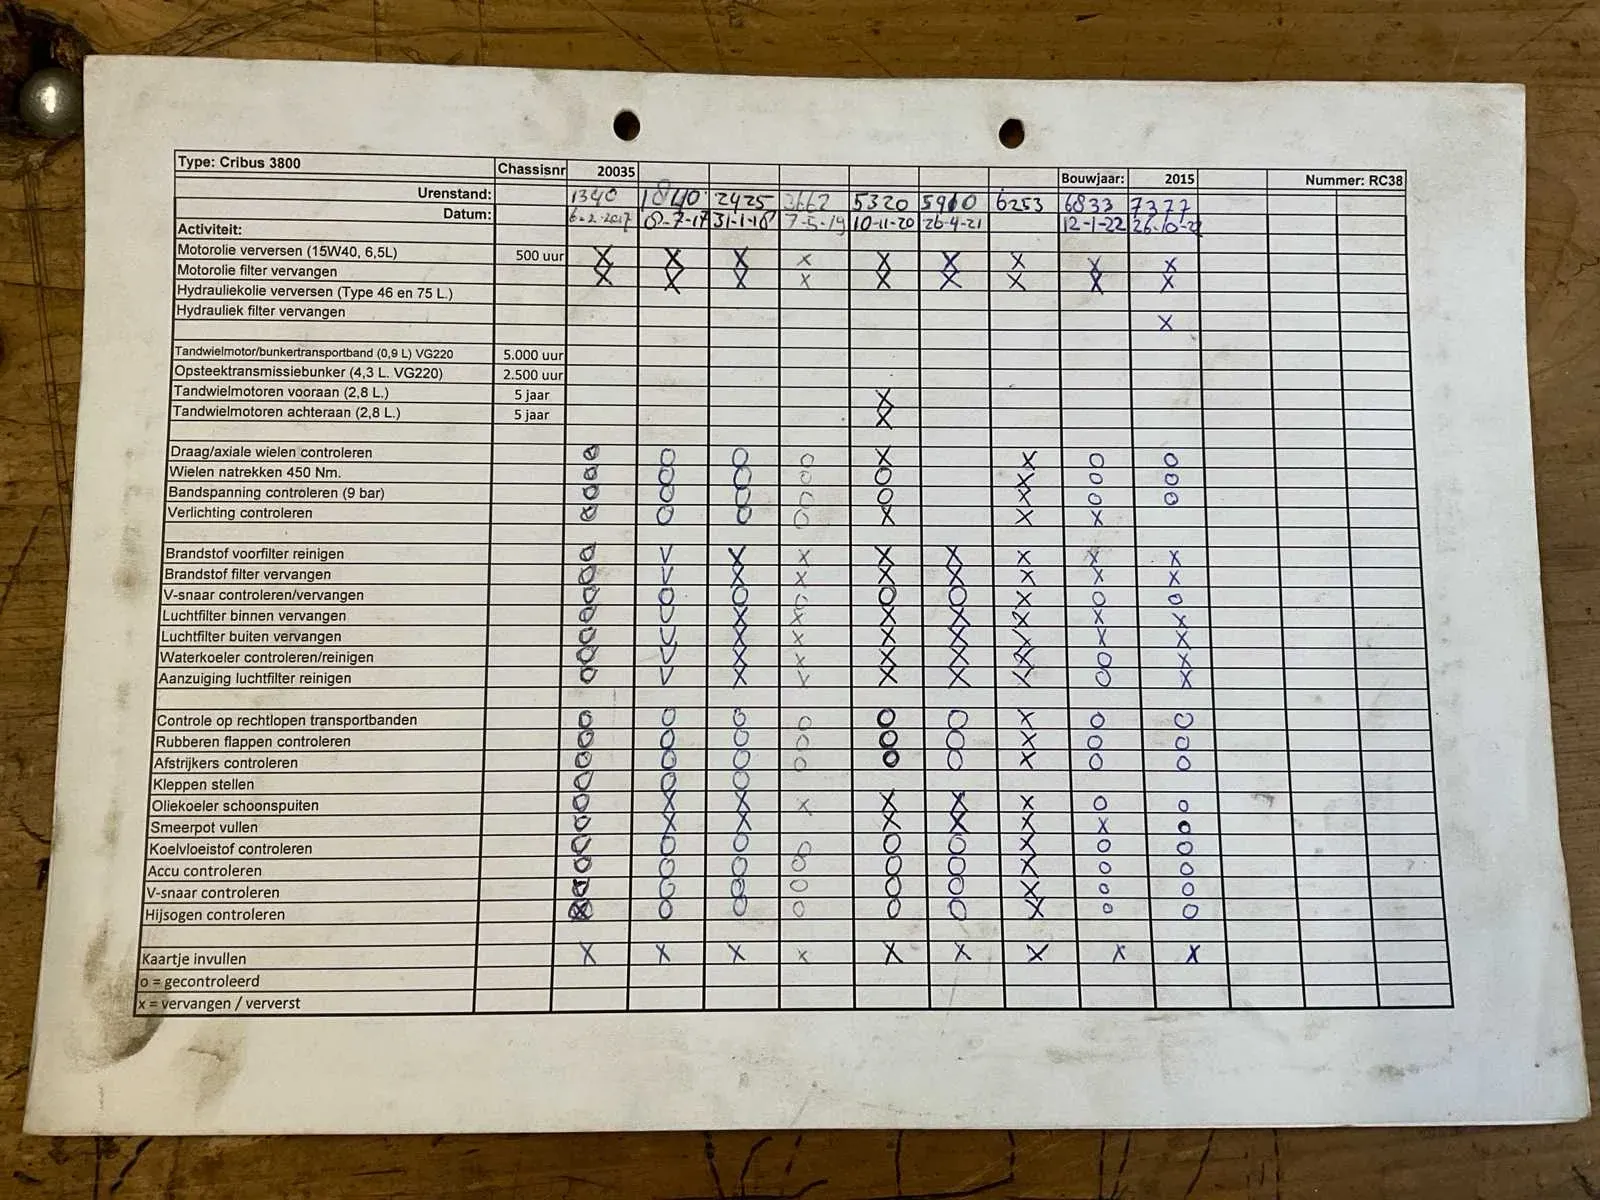 Type: Cribus 3800 Chassisnr 20035 Bouwjaar: 2015 Nummer: RC38
Urenstand: 1340 1840 2425 3662 5320 5960 6253 6833 7377
Datum: 6-2-2017 8-7-17 31-1-18 7-5-19 10-11-20 26-4-21 12-1-22 26-10-22
Activiteit:
Motorolie verversen (15W40, 6,5L) 500 uur X X X X X X X X X
Motorolie filter vervangen X X X X X X X X X
Hydrauliekolie verversen (Type 46 en 75 L.)
Hydrauliek filter vervangen X
Tandwielmotor/bunkertransportband (0,9 L) VG220 5.000 uur
Opsteektransmissiebunker (4,3 L. VG220) 2.500 uur
Tandwielmotoren vooraan (2,8 L.) 5 jaar X
Tandwielmotoren achteraan (2,8 L.) 5 jaar X
Draag/axiale wielen controleren O O O O X X O O
Wielen natrekken 450 Nm. O O O O O X O O
Bandspanning controleren (9 bar) O O O O O X O O
Verlichting controleren O O O O X X X
Brandstof voorfilter reinigen O V X X X X X X X
Brandstof filter vervangen O V X X X X X X X
V-snaar controleren/vervangen O O O O O O X O O
Luchtfilter binnen vervangen O U X X X X X X X
Luchtfilter buiten vervangen O U X X X X X X X
Waterkoeler controleren/reinigen O V X X X X X O X
Aanzuiging luchtfilter reinigen O V X V X X X O X
Controle op rechtlopen transportbanden O O O O O O X O O
Rubberen flappen controleren O O O O O O X O O
Afstrijkers controleren O O O O O O X O O
Kleppen stellen O O O
Oliekoeler schoonspuiten O X X X X X X O O
Smeerpot vullen O X X X X X X O
Koelvloeistof controleren O O O O O O X O O
Accu controleren O O O O O O X O O
V-snaar controleren O O O O O O X O O
Hijsogen controleren O O O O O X O O
Kaartje invullen X X X X X X X X X
o = gecontroleerd
x = vervangen / ververst